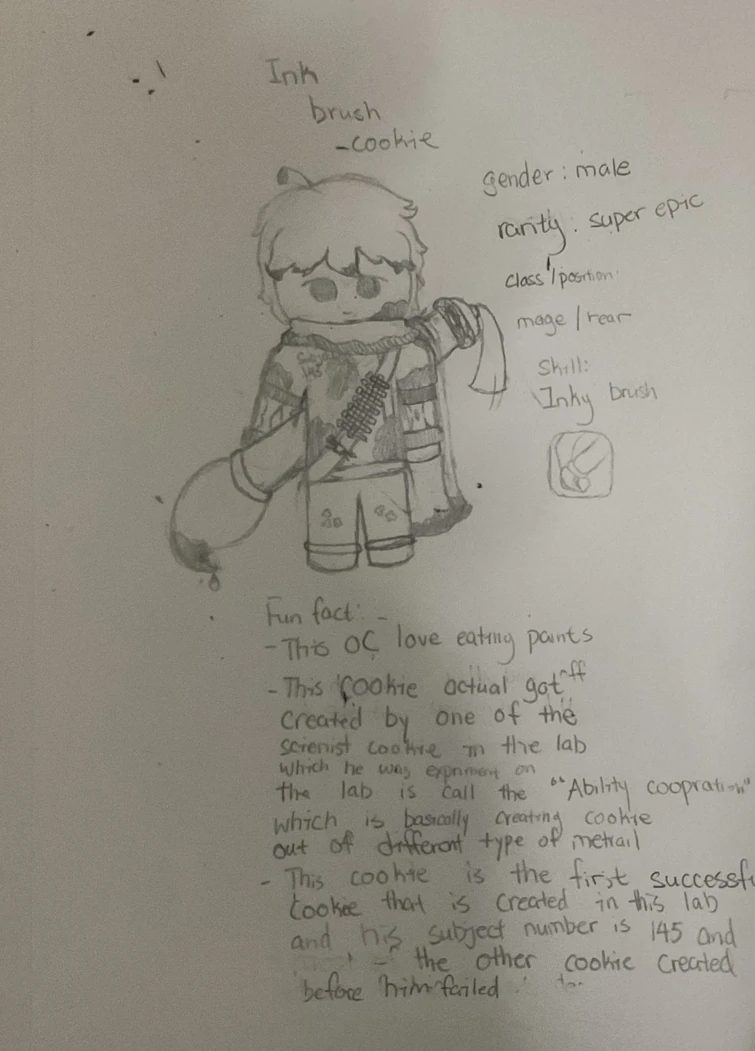 Ink
brush
-cookie
gender : male
rarity : super epic
class/position:
mage / rear
Skill:
Inky brush
145
Fun fact: -
- This OC love eating paints
- This cookie actual got
created by one of the
scienist cookie in the lab
which he was expriment on
the lab is call the "Ability coopration"
which is basically creating cookie
out of different type of metrail
- This cookie is the first successfu
cookie that is created in this lab
and his subject number is 145 and
the other cookie created
before him failed